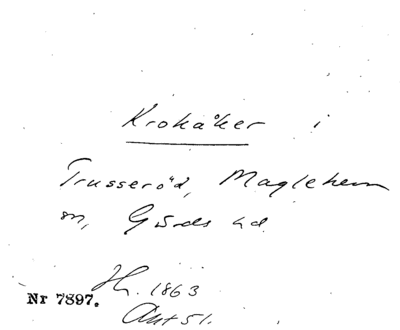 Krokåker i
Trusseröd, Maglehem
sn, Gärds hd.
1863
Nr 7897.
Akt 51.